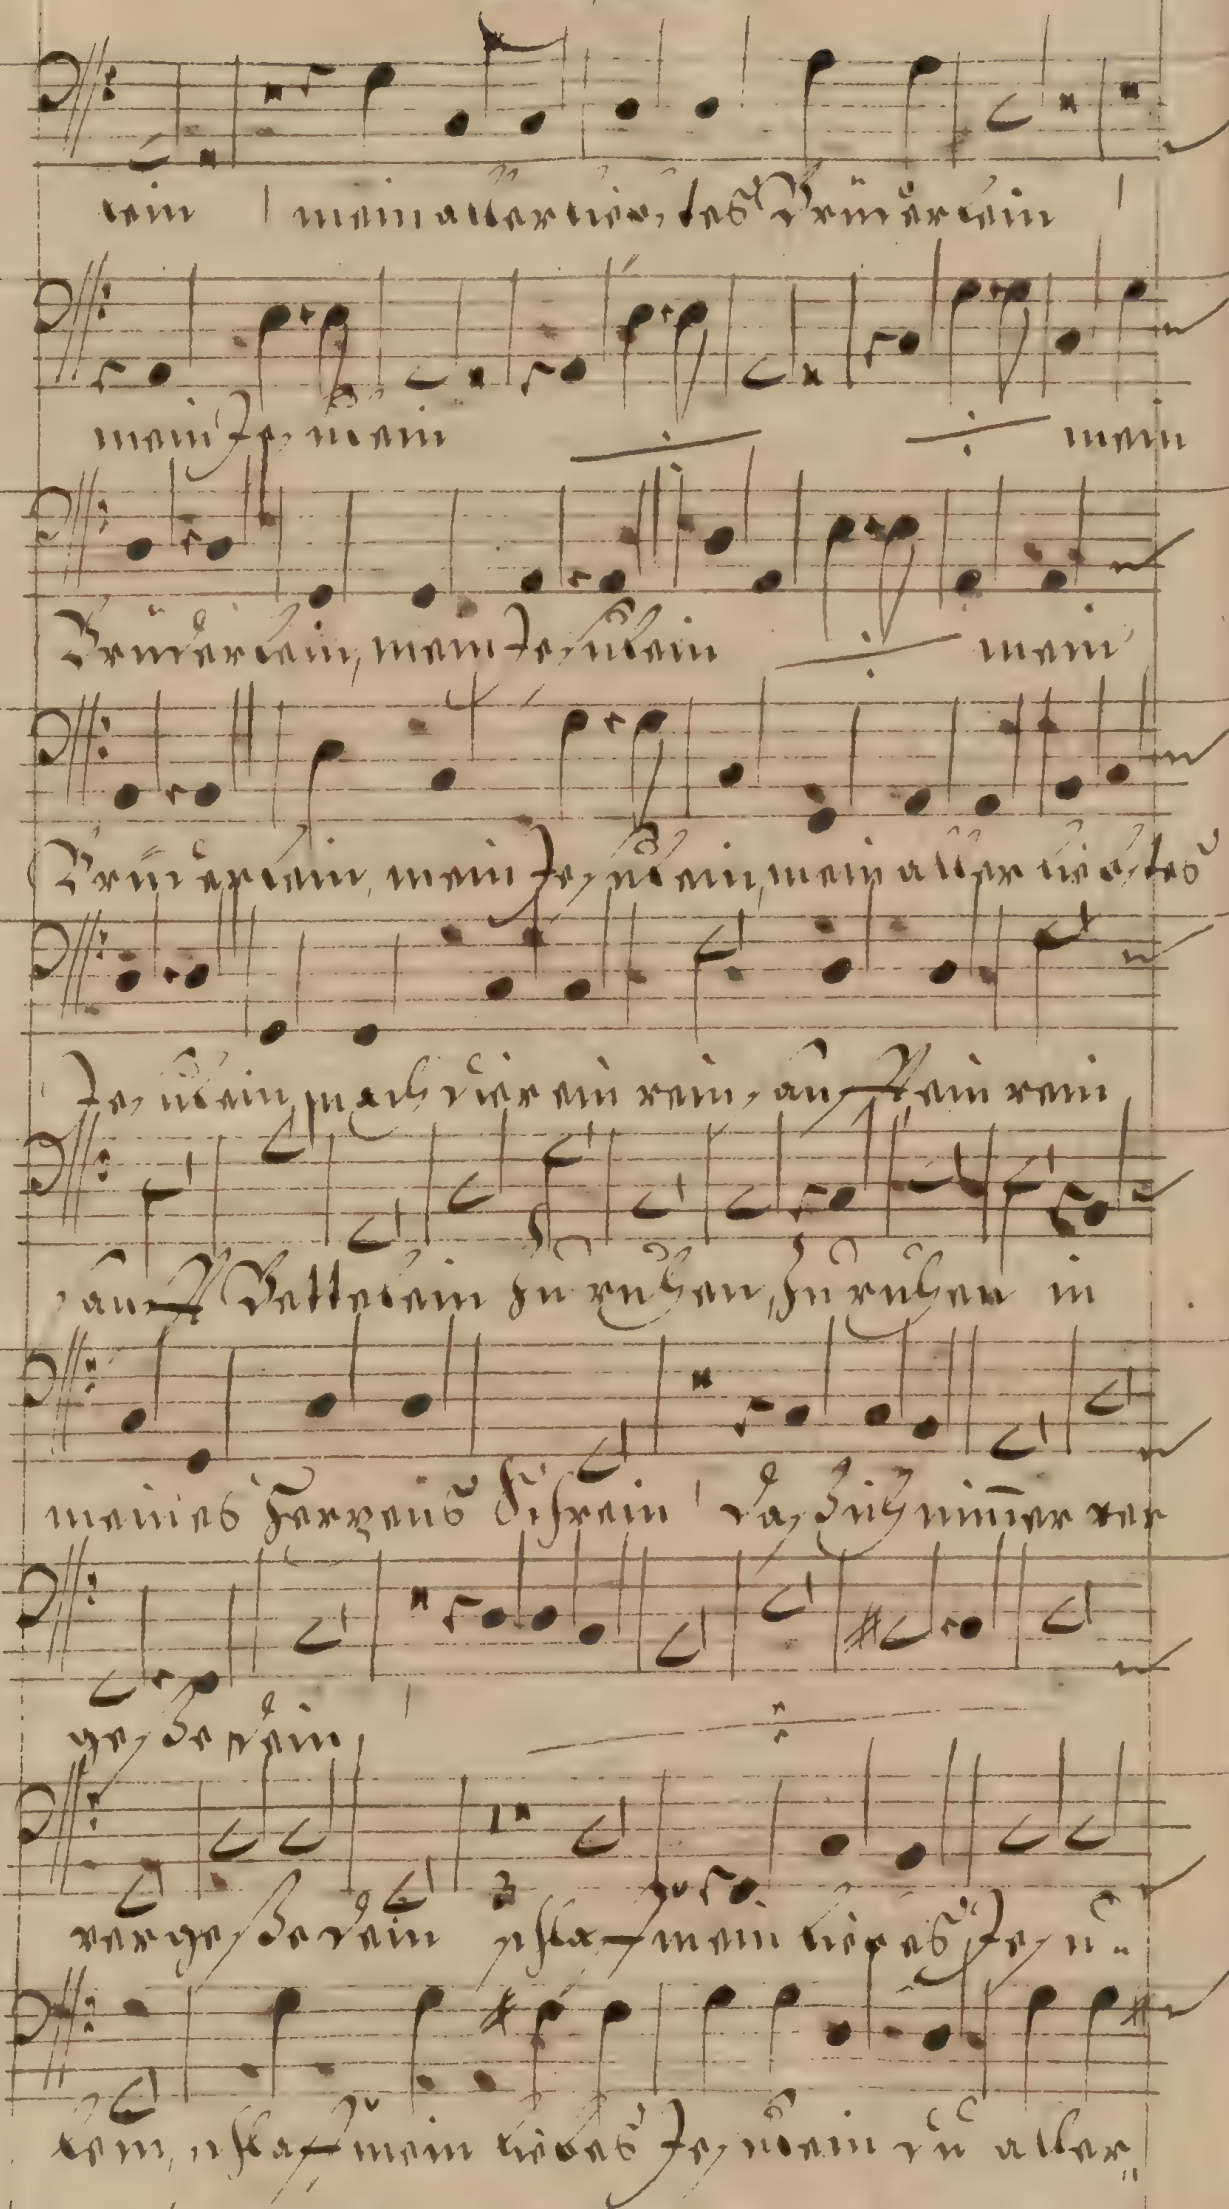 lein | mein allerlieb,stes Brüderlein |
mein Je,sulein mein
Brüderlein, mein Je,sulein mein
Brüderlein, mein Je,sulein, mein allerlieb,stes
Je,sulein, mach dier ein rein, sanfft ein rein
sanfft Bettelein zu ruhen, zu ruhen in
meines Herzens Schrein | Da,ß ich nim̅er ver
ge,ße dein |
verge,ße dein schlaf mein liebes Je,su..
lein, schlaf mein liebes Je,sulein du aller..